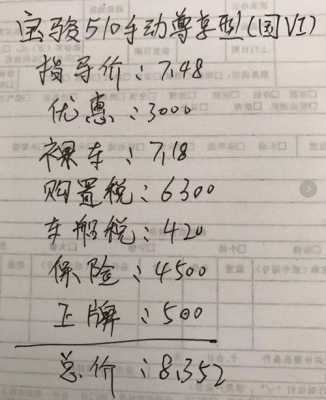 宝骏510手动尊享型(国VI)
指导价：7.48
优惠：3000
裸车：7.18
购置税：6300
车船税：420
保险：4500
上牌：500
总价：8.352